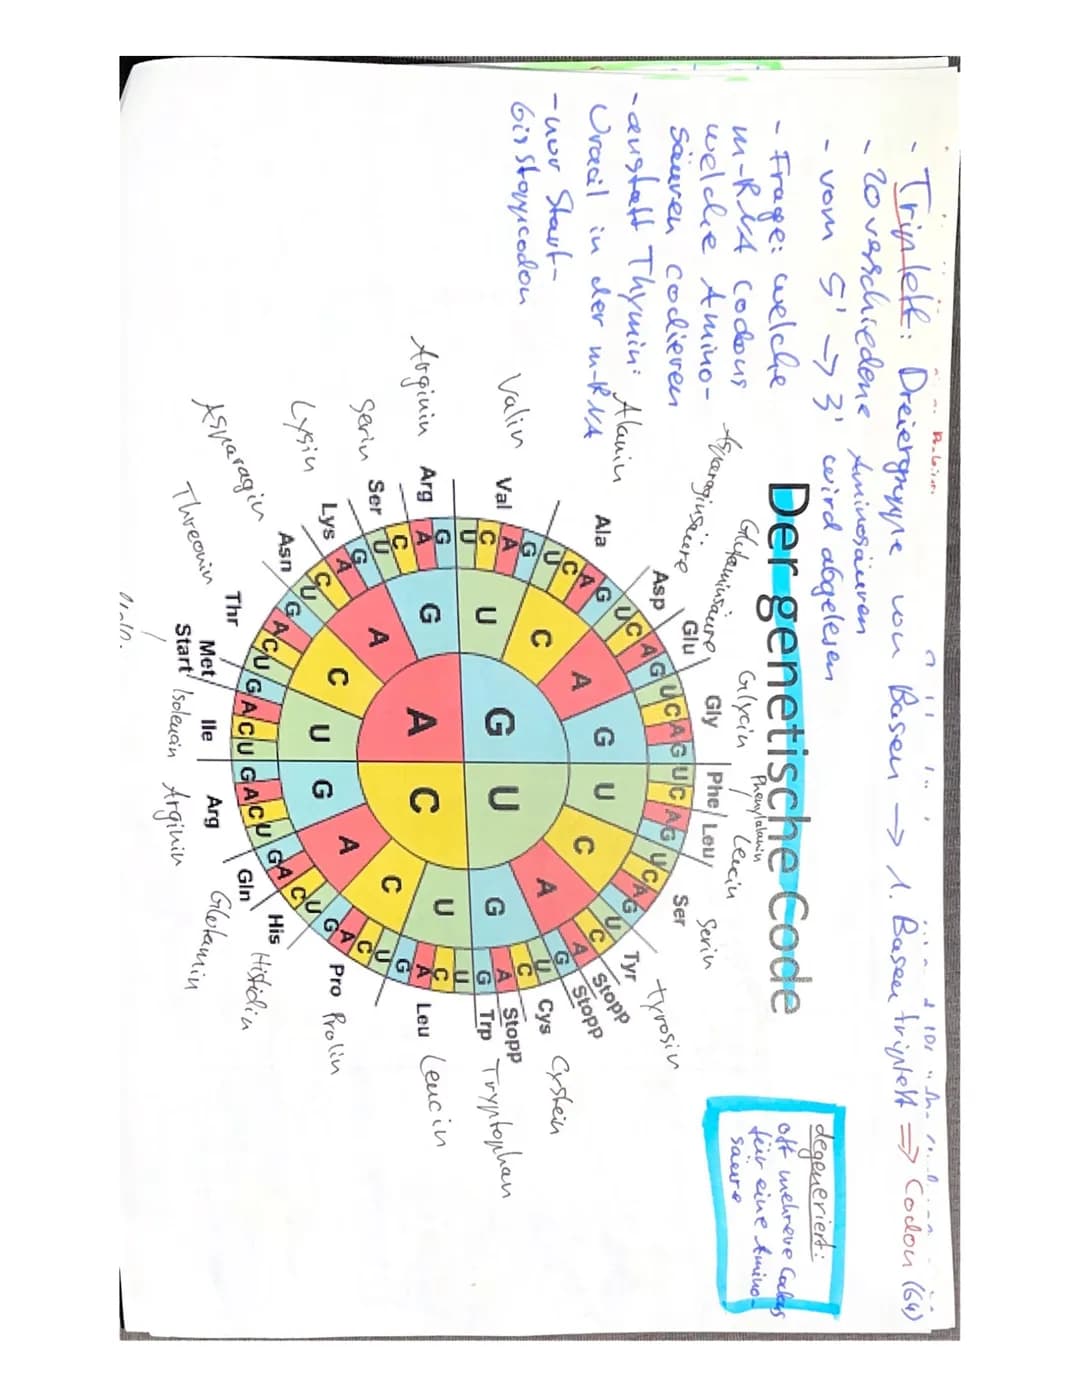 - Triplett: Dreiergruppe von Basen → 1. Basentriplett ⇒ Codon (64)
- 20 verschiedene Aminosäuren
- vom 5' → 3' wird abgelesen
Der genetische Code
- Frage: welche
m-RNA Codons
welche Amino-
säuren codieren
- anstatt Thymin:
Uracil in der m-RNA
- nur Start-
bis Stoppcodon
degeneriert:
oft mehrere Codons
für eine Amino-
säure
Asparaginsäure
Glutaminsäure
Glycin
Phenylalanin
Leucin
Serin
Tyrosin
Cystein
Tryptophan
Leucin
Prolin
Histidin
Glutamin
Arginin
Isoleucin
Threonin
Asparagin
Lysin
Serin
Arginin
Valin
Alanin
Asp
Glu
Gly
Phe
Leu
Ser
Tyr
Stopp
Stopp
Cys
Stopp
Trp
Leu
Pro
His
Gln
Arg
Ile
Met
Start
Thr
Asn
Lys
Ser
Arg
Val
Ala
G U
A C
U C A G U C A G
U C A G U C A G
U C A G U C A G U C A G U C A G
U C A G U C A G U C A G U C A G
U C A G U C A G U C A G U C A G
U C A G U C A G U C A G U C A G